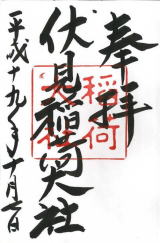 奉拝
伏見稲荷大社
平成十九年十月二日
稲荷
大社